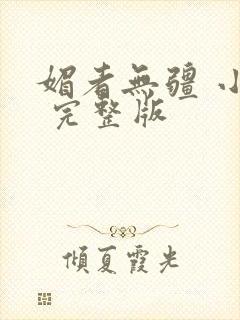 媚者無疆 小
完整版
傾夏霞光